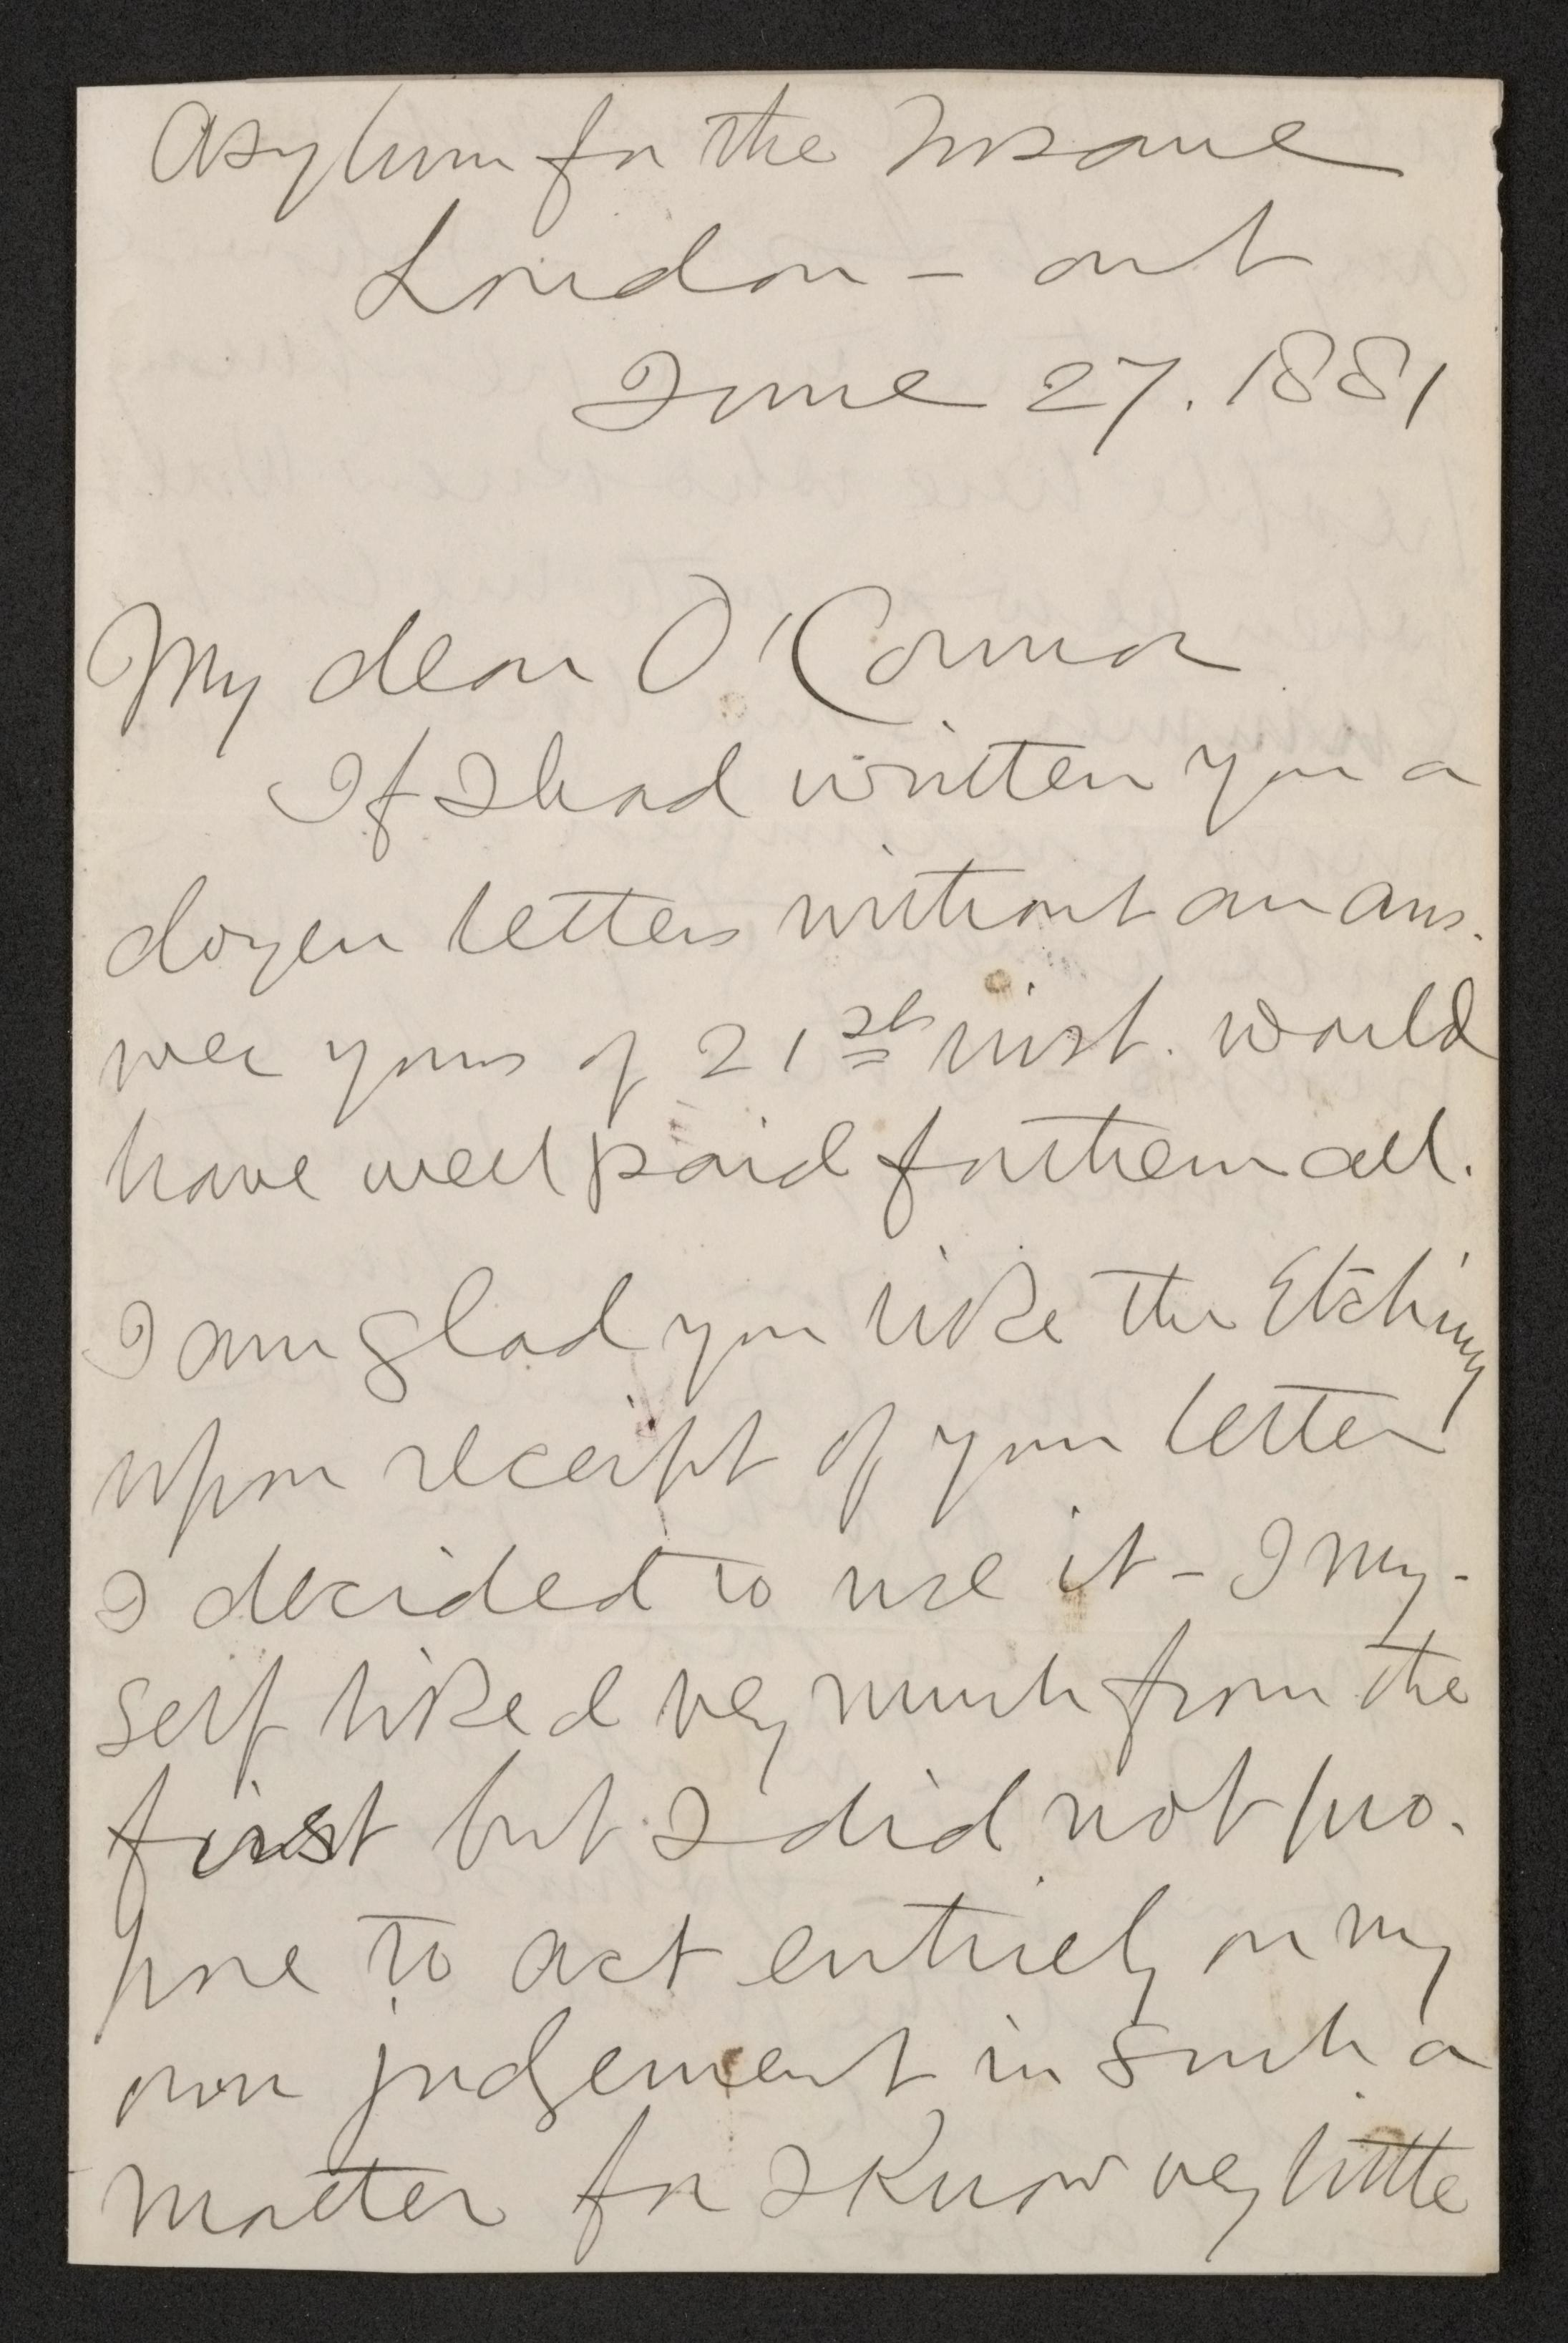 Asylum for the Insane
London - Ont
June 27. 1881
My dear O'Connor
If I had written you a
dozen letters without an ans.
wer yours of 21st inst. would
have well paid for them all.
I am glad you like the Etching
upon receipt of your letter
I decided to use it - I my-
self liked very much from the
first but I did not pro.
pose to act entirely on my
own judgement in such a
matter for I know very little